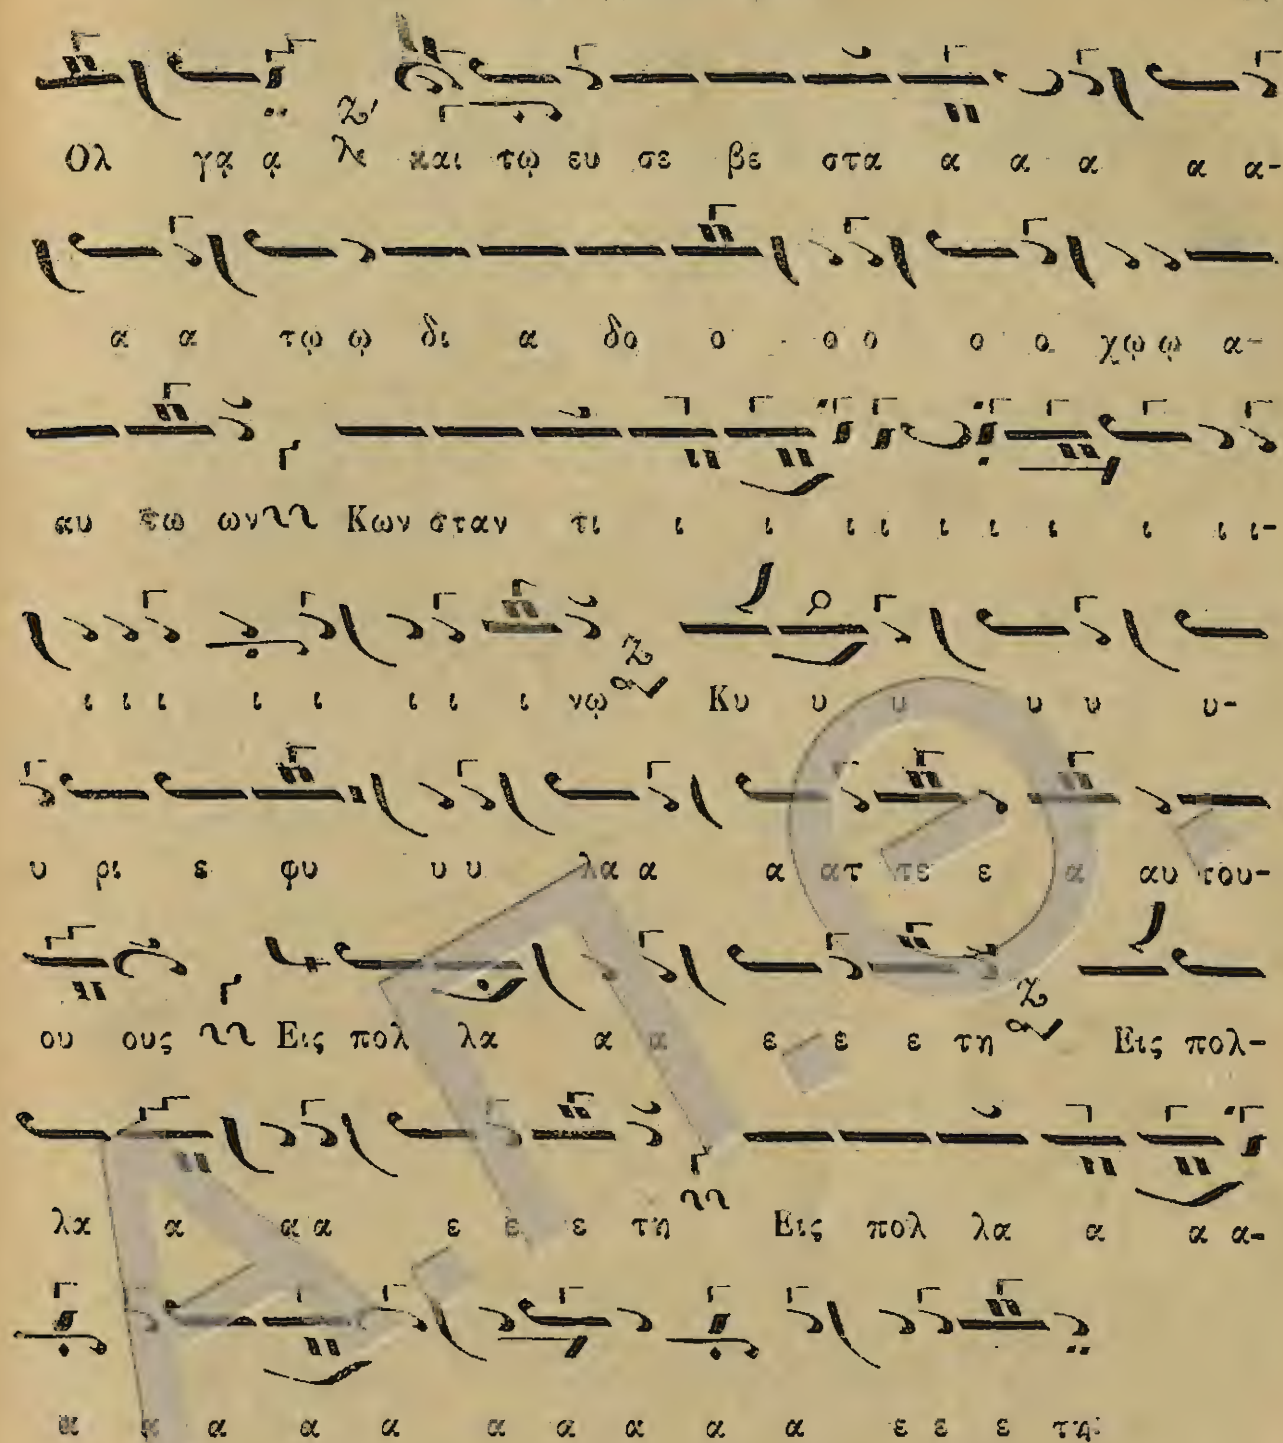 Ολ γᾳ ᾳ και τῳ ευ σε βε στα α α α α α-
α α τῳ ῳ δι α δο ο ο ο ο ο χῳ ῳ α-
αυ τω ων Κων σταν τι ι ι ι ι ι ι ι ι ι ι-
ι ι ι ι ι ι ι ι νῳ Κυ υ υ υ υ υ-
υ ρι ε φυ υ υ λα α α ατ τε ε α αυ του-
ου ους Εις πολ λα α α ε ε ε τη Εις πολ-
λα α α α ε ε ε τη Εις πολ λα α α α-
α α α α α α α α α α ε ε ε τη: